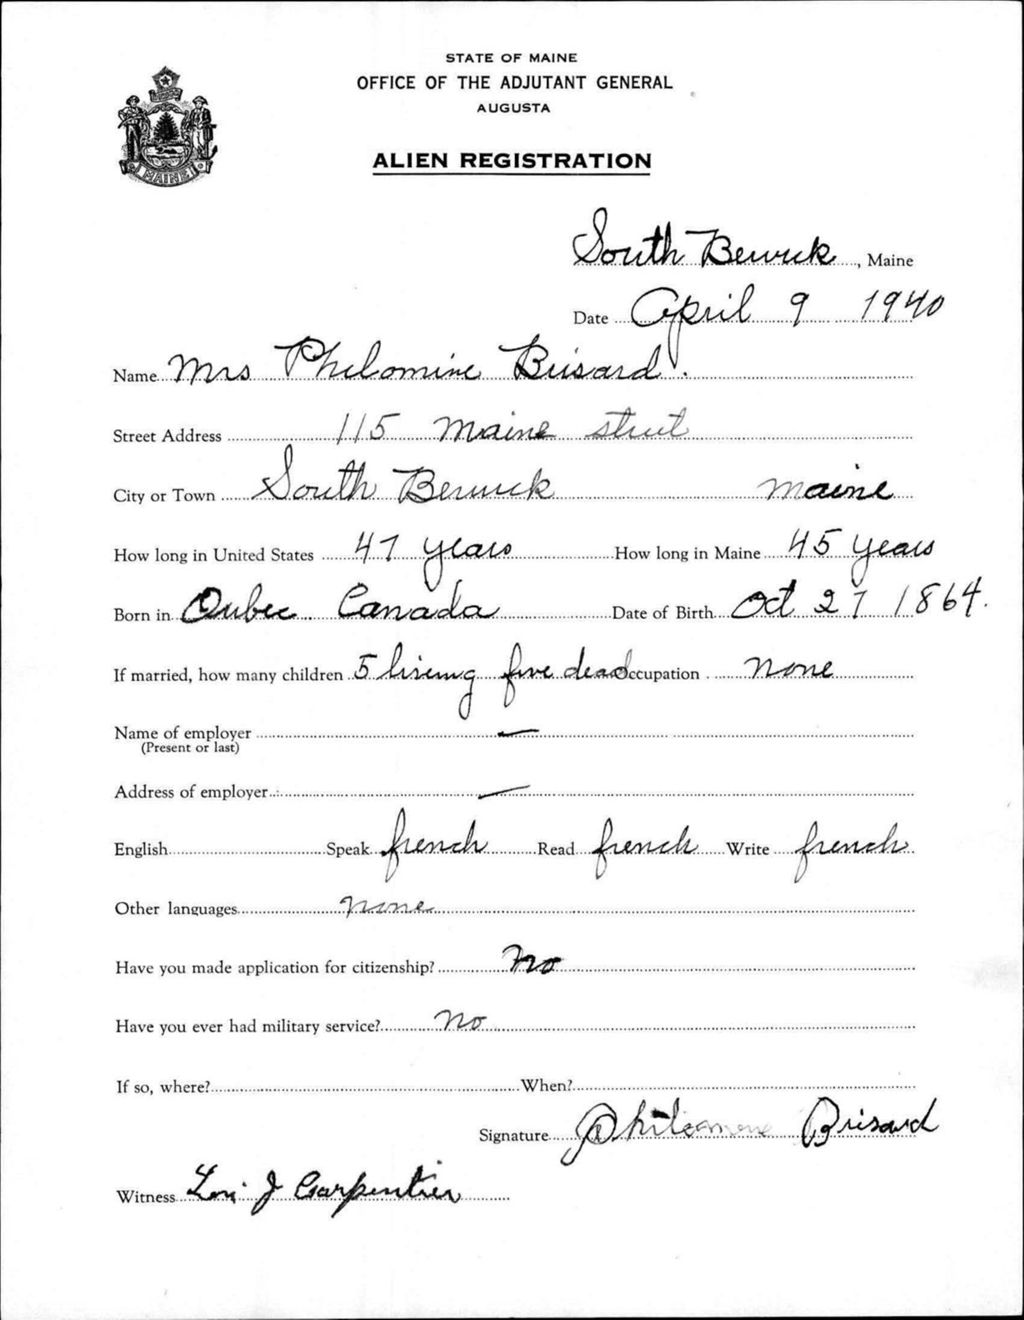 STATE OF MAINE
OFFICE OF THE ADJUTANT GENERAL
AUGUSTA
ALIEN REGISTRATION
MAINE
South Berwick, Maine
Date April 9 1940
Name Mrs Philomine Brisard.
Street Address 115 Maine street
City or Town South Berwick Maine
How long in United States 47 years How long in Maine 45 years
Born in Qubec Canada Date of Birth Oct 27 1864.
If married, how many children 5 living five dead Occupation none
Name of employer —
(Present or last)
Address of employer —
English Speak french Read french Write french
Other languages none
Have you made application for citizenship? No
Have you ever had military service? No
If so, where? When?
Signature Philomone Brisard
Witness J Carpentier